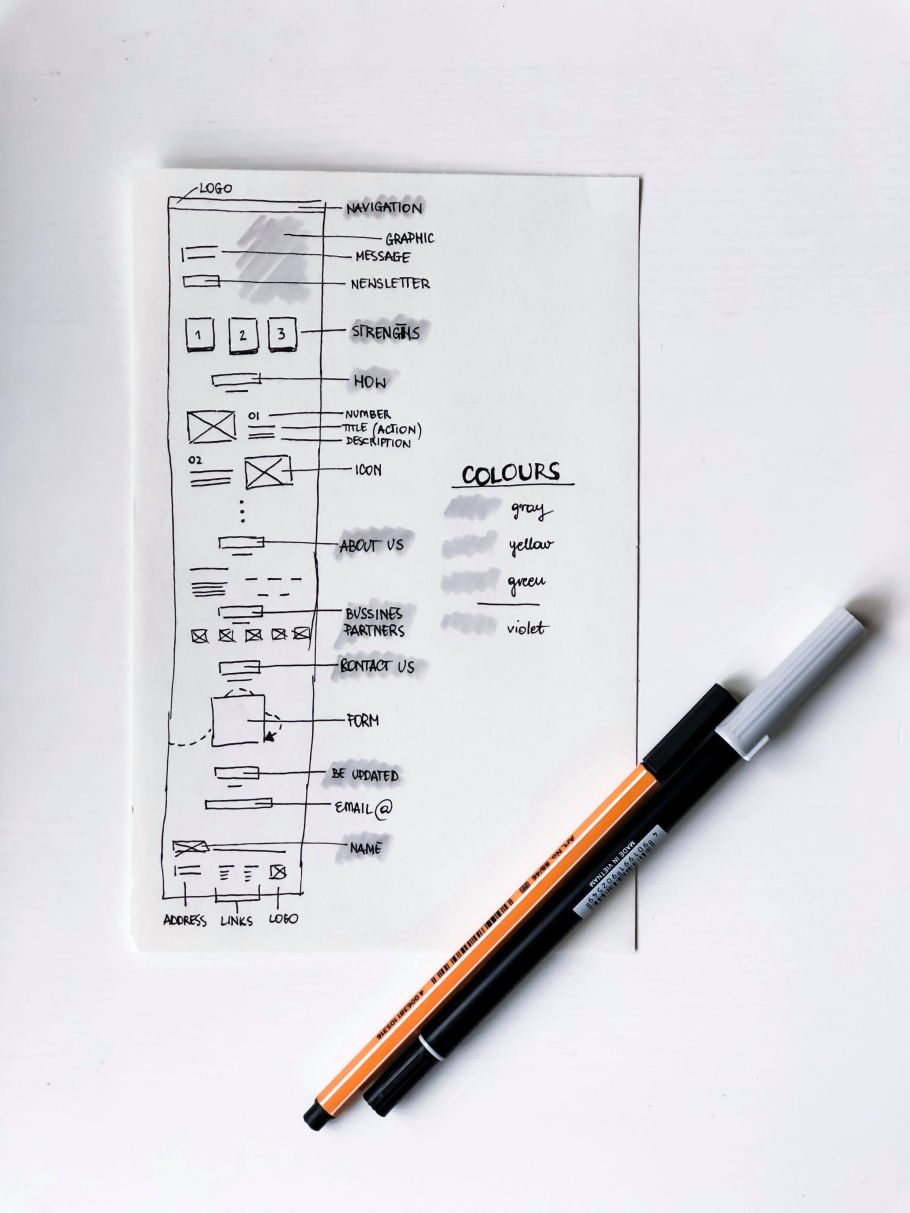 LOGO
NAVIGATION
GRAPHIC
MESSAGE
NEWSLETTER
1 2 3
STRENGTHS
HOW
01
NUMBER
TITLE (ACTION)
DESCRIPTION
02
ICON
ABOUT US
BUSSINES
PARTNERS
CONTACT US
FORM
BE UPDATED
EMAIL @
NAME
ADDRESS LINKS LOGO
COLOURS
gray
yellow
green
violet
Art. No. 88/46
4 006381 105316
MADE IN VIETNAM